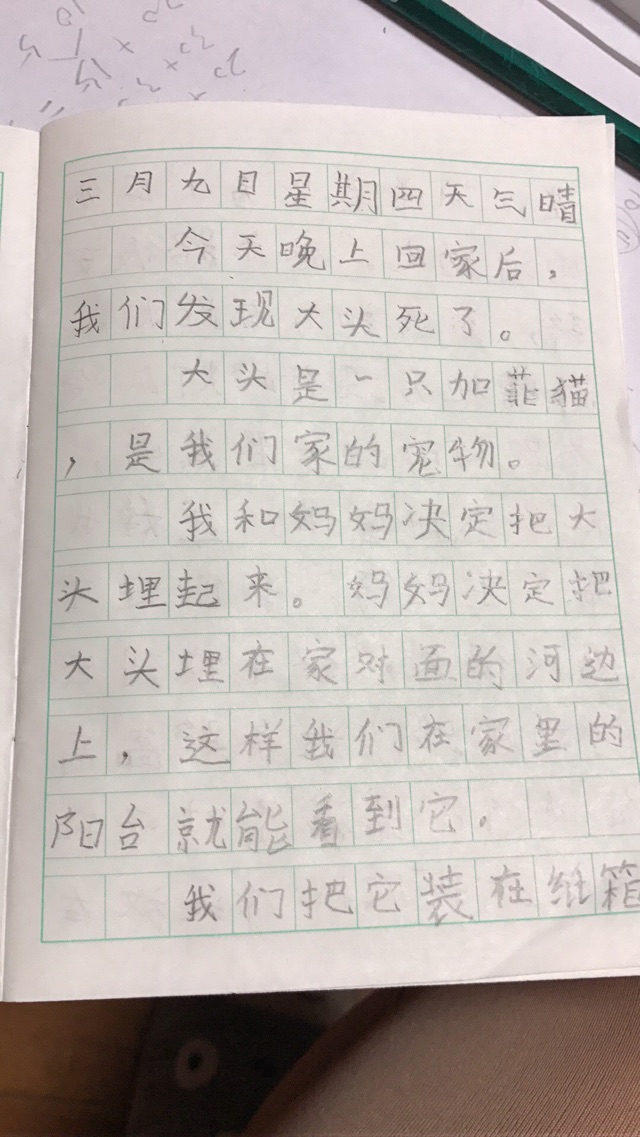 三月九日星期四天气晴
今天晚上回家后，
我们发现大头死了。
大头是一只加菲猫
，是我们家的宠物。
我和妈妈决定把大
头埋起来。妈妈决定把
大头埋在家对面的河边
上，这样我们在家里的
阳台就能看到它。
我们把它装在纸箱